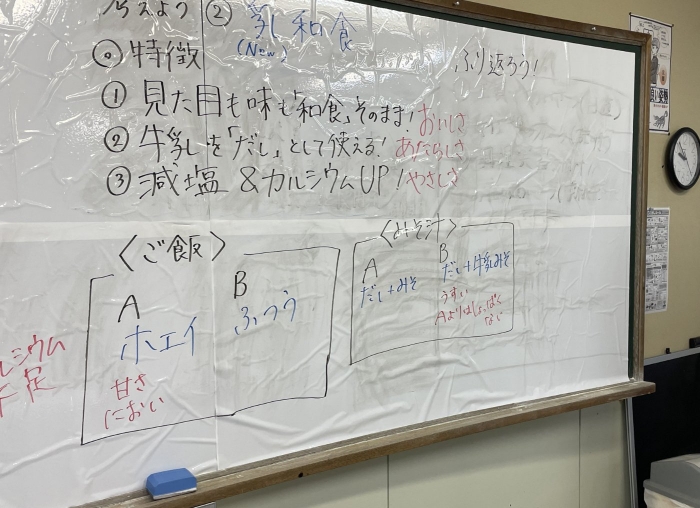 考えよう ② 乳和食
(New)
ふり返ろう!
◎特徴
① 見た目も味も「和食」そのまま! おいしさ
② 牛乳を「だし」として使える! あたらしさ
③ 減塩 &カルシウムUP! やさしさ
〈ご飯〉
A
ホエイ
甘さ
におい
B
ふつう
〈みそ汁〉
A
だし+みそ
B
だし+牛乳みそ
うすい
Aよりはしょっぱく
ない
ルシウム
不足